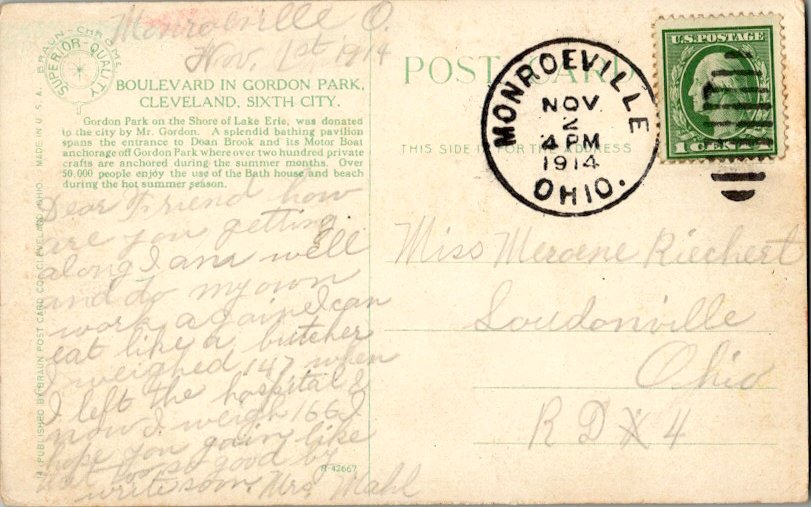 Monroeville O.
Nov. 1st 1914
BRAUN-CHROME
SUPERIOR-QUALITY
BOULEVARD IN GORDON PARK,
CLEVELAND, SIXTH CITY.
Gordon Park on the Shore of Lake Erie, was donated
to the city by Mr. Gordon. A splendid bathing pavilion
spans the entrance to Doan Brook and its Motor Boat
anchorage off Gordon Park where over two hundred private
crafts are anchored during the summer months. Over
50,000 people enjoy the use of the Bath house and beach
during the hot summer season.
Dear Friend how
are you getting
along I am well
and do my own
work again I can
eat like a butcher
I weighed 147 when
I left the hospital &
now I weigh 166 I
hope you gain like
that too so good by
write soon. Mrs Mahl
PUBLISHED BY BRAUN POST CARD CO., CLEVELAND, OHIO. MADE IN U.S.A.
R-42667
POST CARD
THIS SIDE IS FOR THE ADDRESS
MONROEVILLE
NOV
2
4 PM
1914
OHIO.
U.S. POSTAGE
1 CENT 1
Miss Meroene Riechert
Loudonville
Ohio
R D X 4